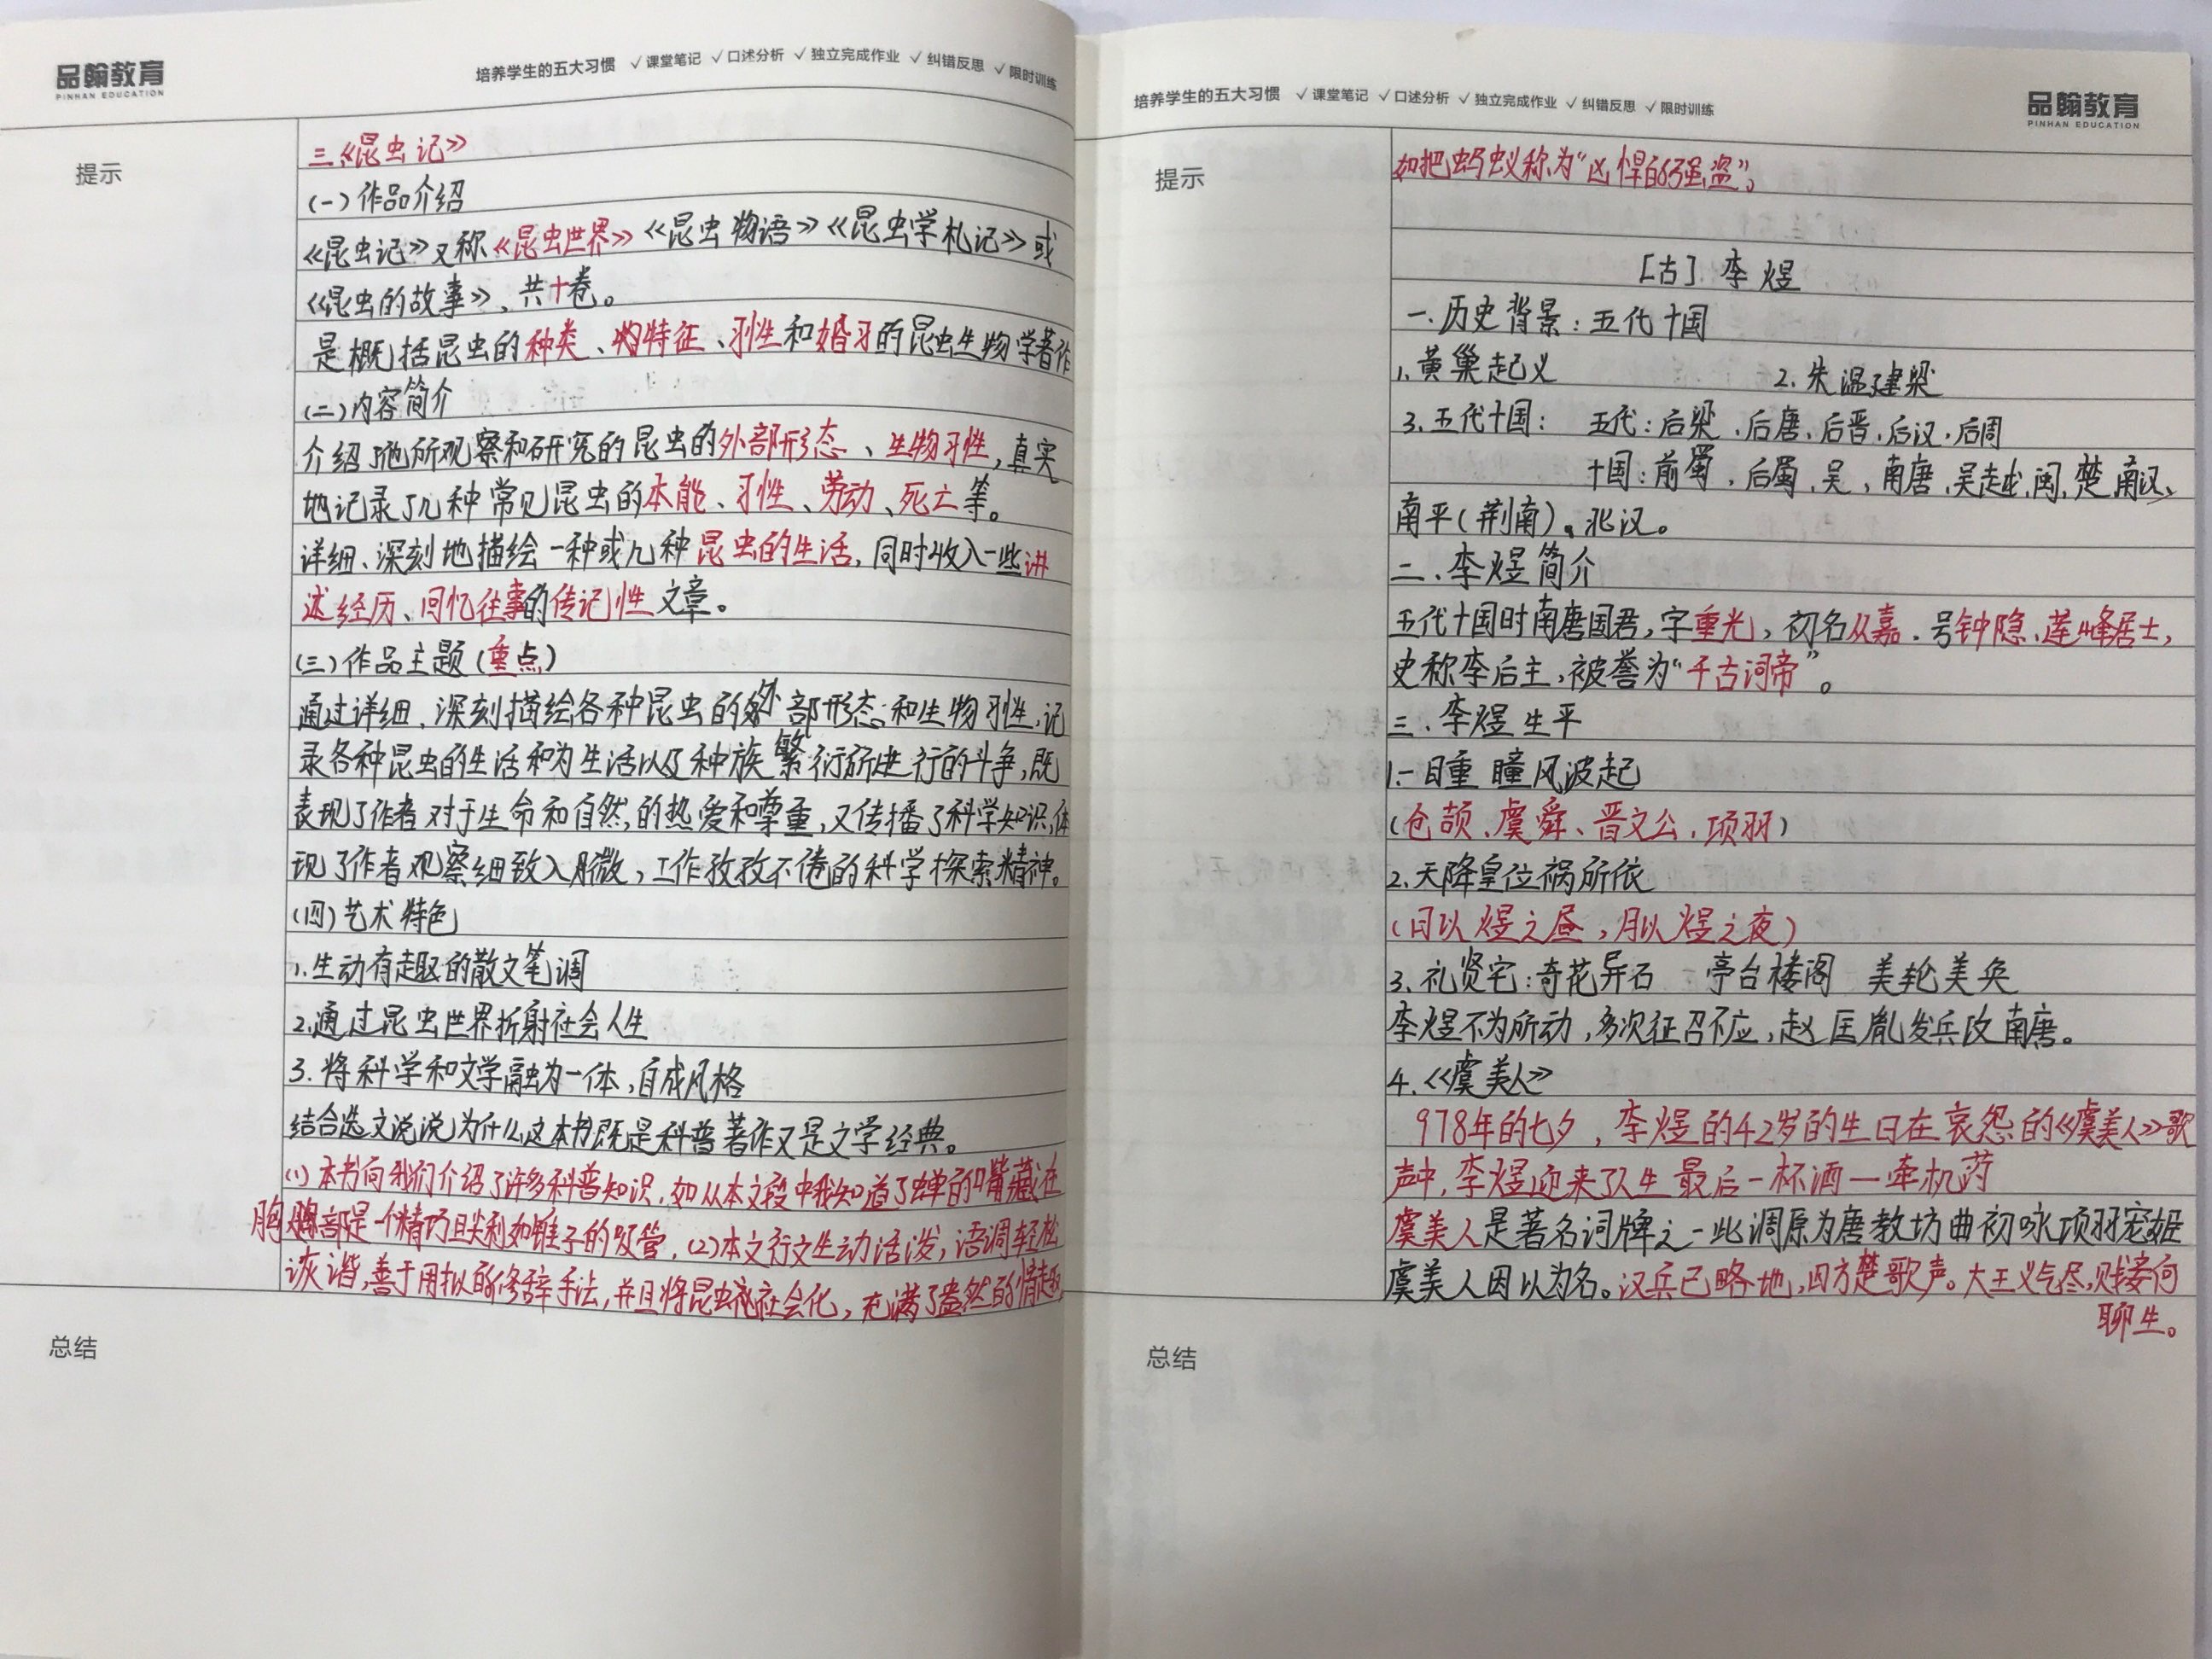 品翰教育
PINHAN EDUCATION
培养学生的五大习惯 √课堂笔记 √口述分析 √独立完成作业 √纠错反思 √限时训练
提示
三《昆虫记》
(一)作品介绍
《昆虫记》又称《昆虫世界》《昆虫物语》《昆虫学札记》或
《昆虫的故事》、共十卷。
是概括昆虫的种类、特征、习性和婚习的昆虫生物学著作
(二)内容简介
介绍了他所观察和研究的昆虫的外部形态、生物习性,真实
地记录了几种常见昆虫的本能、习性、劳动、死亡等。
详细、深刻地描绘一种或几种昆虫的生活,同时收入一些讲
述经历、回忆往事的传记性文章。
(三)作品主题(重点)
通过详细、深刻描绘各种昆虫的外部形态和生物习性,记
录各种昆虫的生活和为生活以及种族繁衍所进行的斗争,既
表现了作者对于生命和自然的热爱和尊重,又传播了科学知识,体
现了作者观察细致入微,工作孜孜不倦的科学探索精神。
(四)艺术特色
1.生动有趣的散文笔调
2.通过昆虫世界折射社会人生
3.将科学和文学融为一体,自成风格
结合选文说说为什么这本书既是科普著作又是文学经典。
(1)本书向我们介绍了许多科普知识,如从本文段中我知道了蝉的嘴藏在
胸部是一个精巧且尖利如锥子的吸管,(2)本文行文生动活泼,语调轻松
诙谐,善于用拟的修辞手法,并且将昆虫社会化,充满了盎然的情趣
总结
培养学生的五大习惯 √课堂笔记 √口述分析 √独立完成作业 √纠错反思 √限时训练
品翰教育
PINHAN EDUCATION
提示
如把蚂蚁称为“凶悍的强盗”。
[古]李煜
一.历史背景:五代十国
1.黄巢起义 2.朱温建梁
3.五代十国: 五代:后梁、后唐、后晋、后汉、后周
十国:前蜀、后蜀、吴、南唐、吴越、闽、楚、南汉、
南平(荆南)、北汉。
二、李煜简介
五代十国时南唐国君,字重光,初名从嘉.号钟隐、莲峰居士,
史称李后主,被誉为“千古词帝”。
三.李煜生平
1.一目重瞳风波起
(仓颉、虞舜、晋文公、项羽)
2.天降皇位祸所依
(日以煜之昼,月以煜之夜)
3.礼贤宅:奇花异石 亭台楼阁 美轮美奂
李煜不为所动,多次征召不应,赵匡胤发兵攻南唐。
4.《虞美人》
978年的七夕,李煜的42岁的生日在哀怨的《虞美人》歌
声中,李煜迎来了人生最后一杯酒—牵机药
虞美人是著名词牌之一此调原为唐教坊曲初咏项羽宠姬
虞美人因以为名。汉兵已略地,四方楚歌声。大王义气尽,贱妾何
聊生。
总结